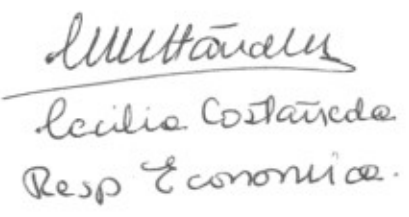 Cecilia Costañeda
Resp Economica.